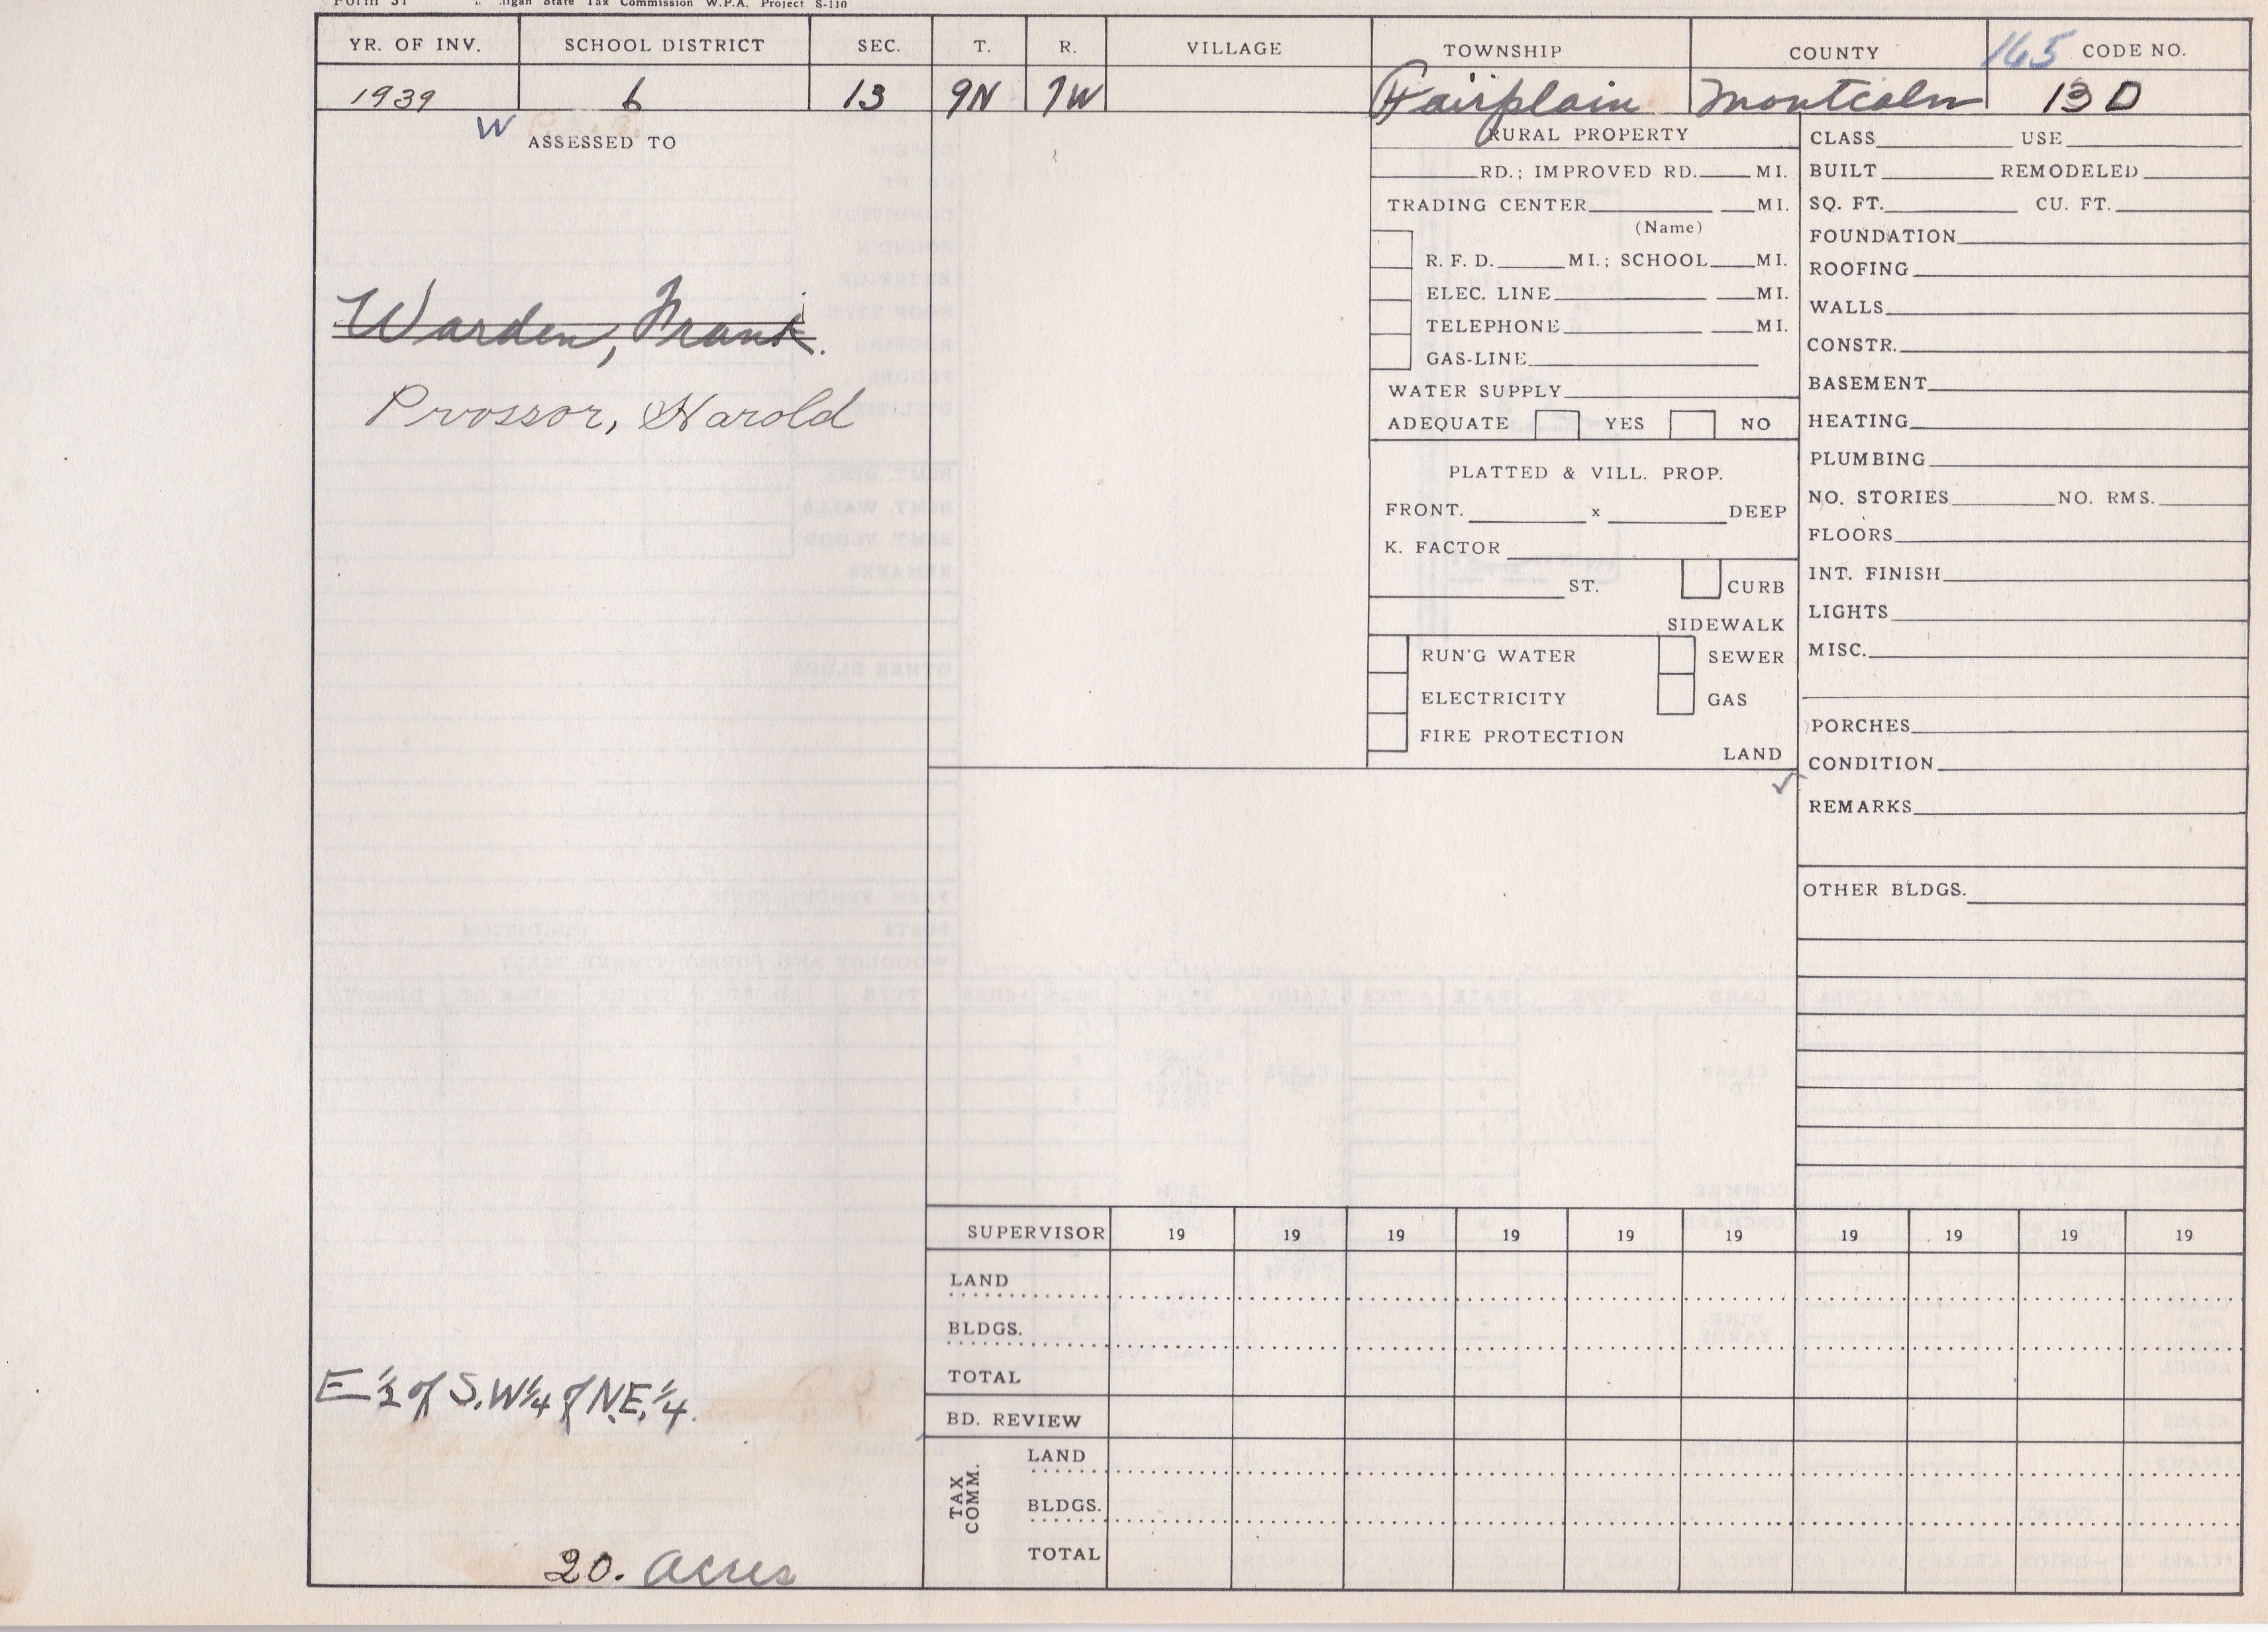 Form 31 Michigan State Tax Commission W.P.A. Project S-110
YR. OF INV. SCHOOL DISTRICT SEC. T. R. VILLAGE TOWNSHIP COUNTY 165 CODE NO.
1939 6 13 9N 7W Fairplain Montcalm 13 D
W
ASSESSED TO
Warden, Frank.
Prossor, Harold
E 1/2 of S.W 1/4 of N.E. 1/4.
20. acres
RURAL PROPERTY
RD.; IMPROVED RD. MI.
TRADING CENTER MI.
(Name)
R. F. D. MI.; SCHOOL MI.
ELEC. LINE MI.
TELEPHONE MI.
GAS-LINE
WATER SUPPLY
ADEQUATE YES NO
PLATTED & VILL. PROP.
FRONT. x DEEP
K. FACTOR
ST. CURB
SIDEWALK
RUN'G WATER SEWER
ELECTRICITY GAS
FIRE PROTECTION
LAND
✓
CLASS USE
BUILT REMODELED
SQ. FT. CU. FT.
FOUNDATION
ROOFING
WALLS
CONSTR.
BASEMENT
HEATING
PLUMBING
NO. STORIES NO. RMS.
FLOORS
INT. FINISH
LIGHTS
MISC.
PORCHES
CONDITION
REMARKS
OTHER BLDGS.
SUPERVISOR 19 19 19 19 19 19 19 19 19 19
LAND
BLDGS.
TOTAL
BD. REVIEW
TAX COMM.
LAND
BLDGS.
TOTAL